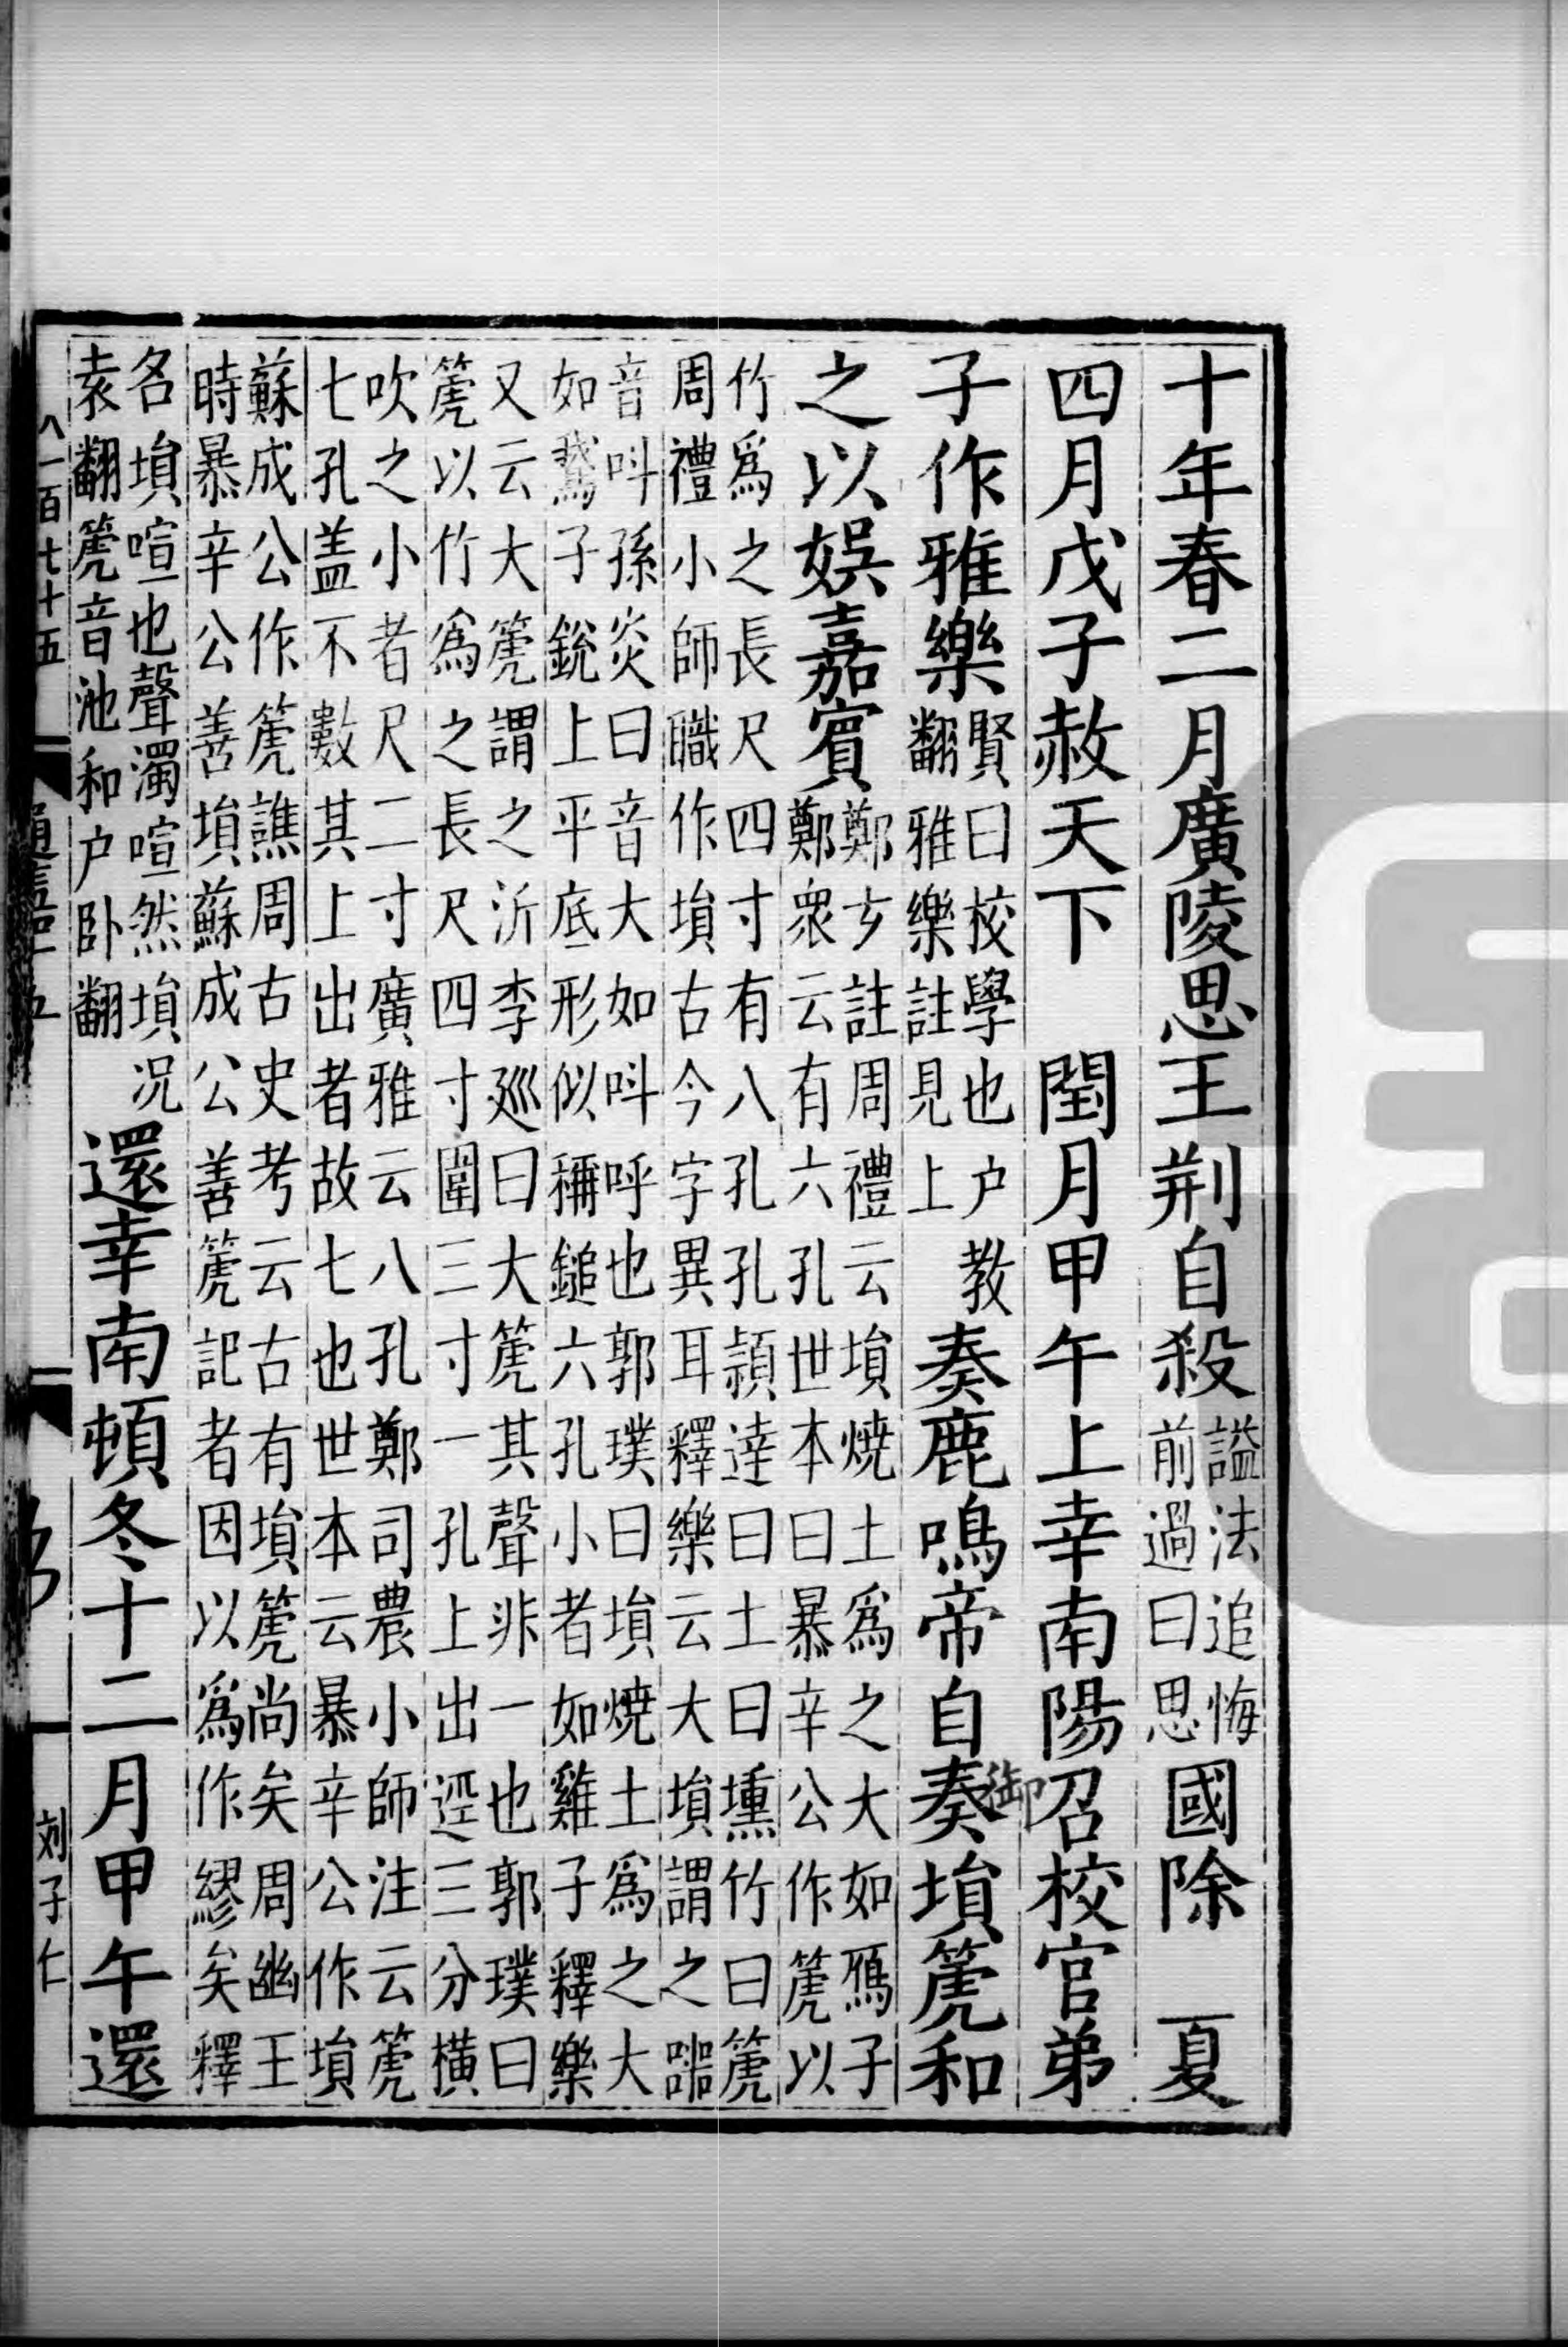 十年春二月廣陵思王荆自殺謚法追悔前過曰思國除　夏
四月戊子赦天下　閏月甲午上幸南陽召校官弟
子作雅樂賢曰校學也户教翻雅樂註見上奏鹿鳴帝自奏塤篪和
御
之以娯嘉賓鄭玄註周禮云塤燒土爲之大如鴈子鄭衆云有六孔世本曰暴辛公作篪以
竹爲之長尺四寸有八孔孔頴達曰土曰壎竹曰篪
周禮小師職作塤古今字異耳釋樂云大塤謂之嘂
音叫孫炎曰音大如叫呼也郭璞曰塤燒土爲之大
如鵞子銳上平底形似稱鎚六孔小者如雞子釋樂
又云大篪謂之沂李廵曰大篪其聲非一也郭璞曰
篪以竹爲之長尺四寸圍三寸一孔上出逕三分橫
吹之小者尺二寸廣雅云八孔鄭司農小師注云篪
七孔盖不數其上出者故七也世本云暴辛公作塤
蘇成公作篪譙周古史考云古有塤篪尚矣周幽王
時暴辛公善塤蘇成公善篪記者因以爲作繆矣釋
名塤喧也聲濁喧然塤况袁翻篪音池和户卧翻還幸南頓冬十二月甲午還
八一百七十五
刘子仁